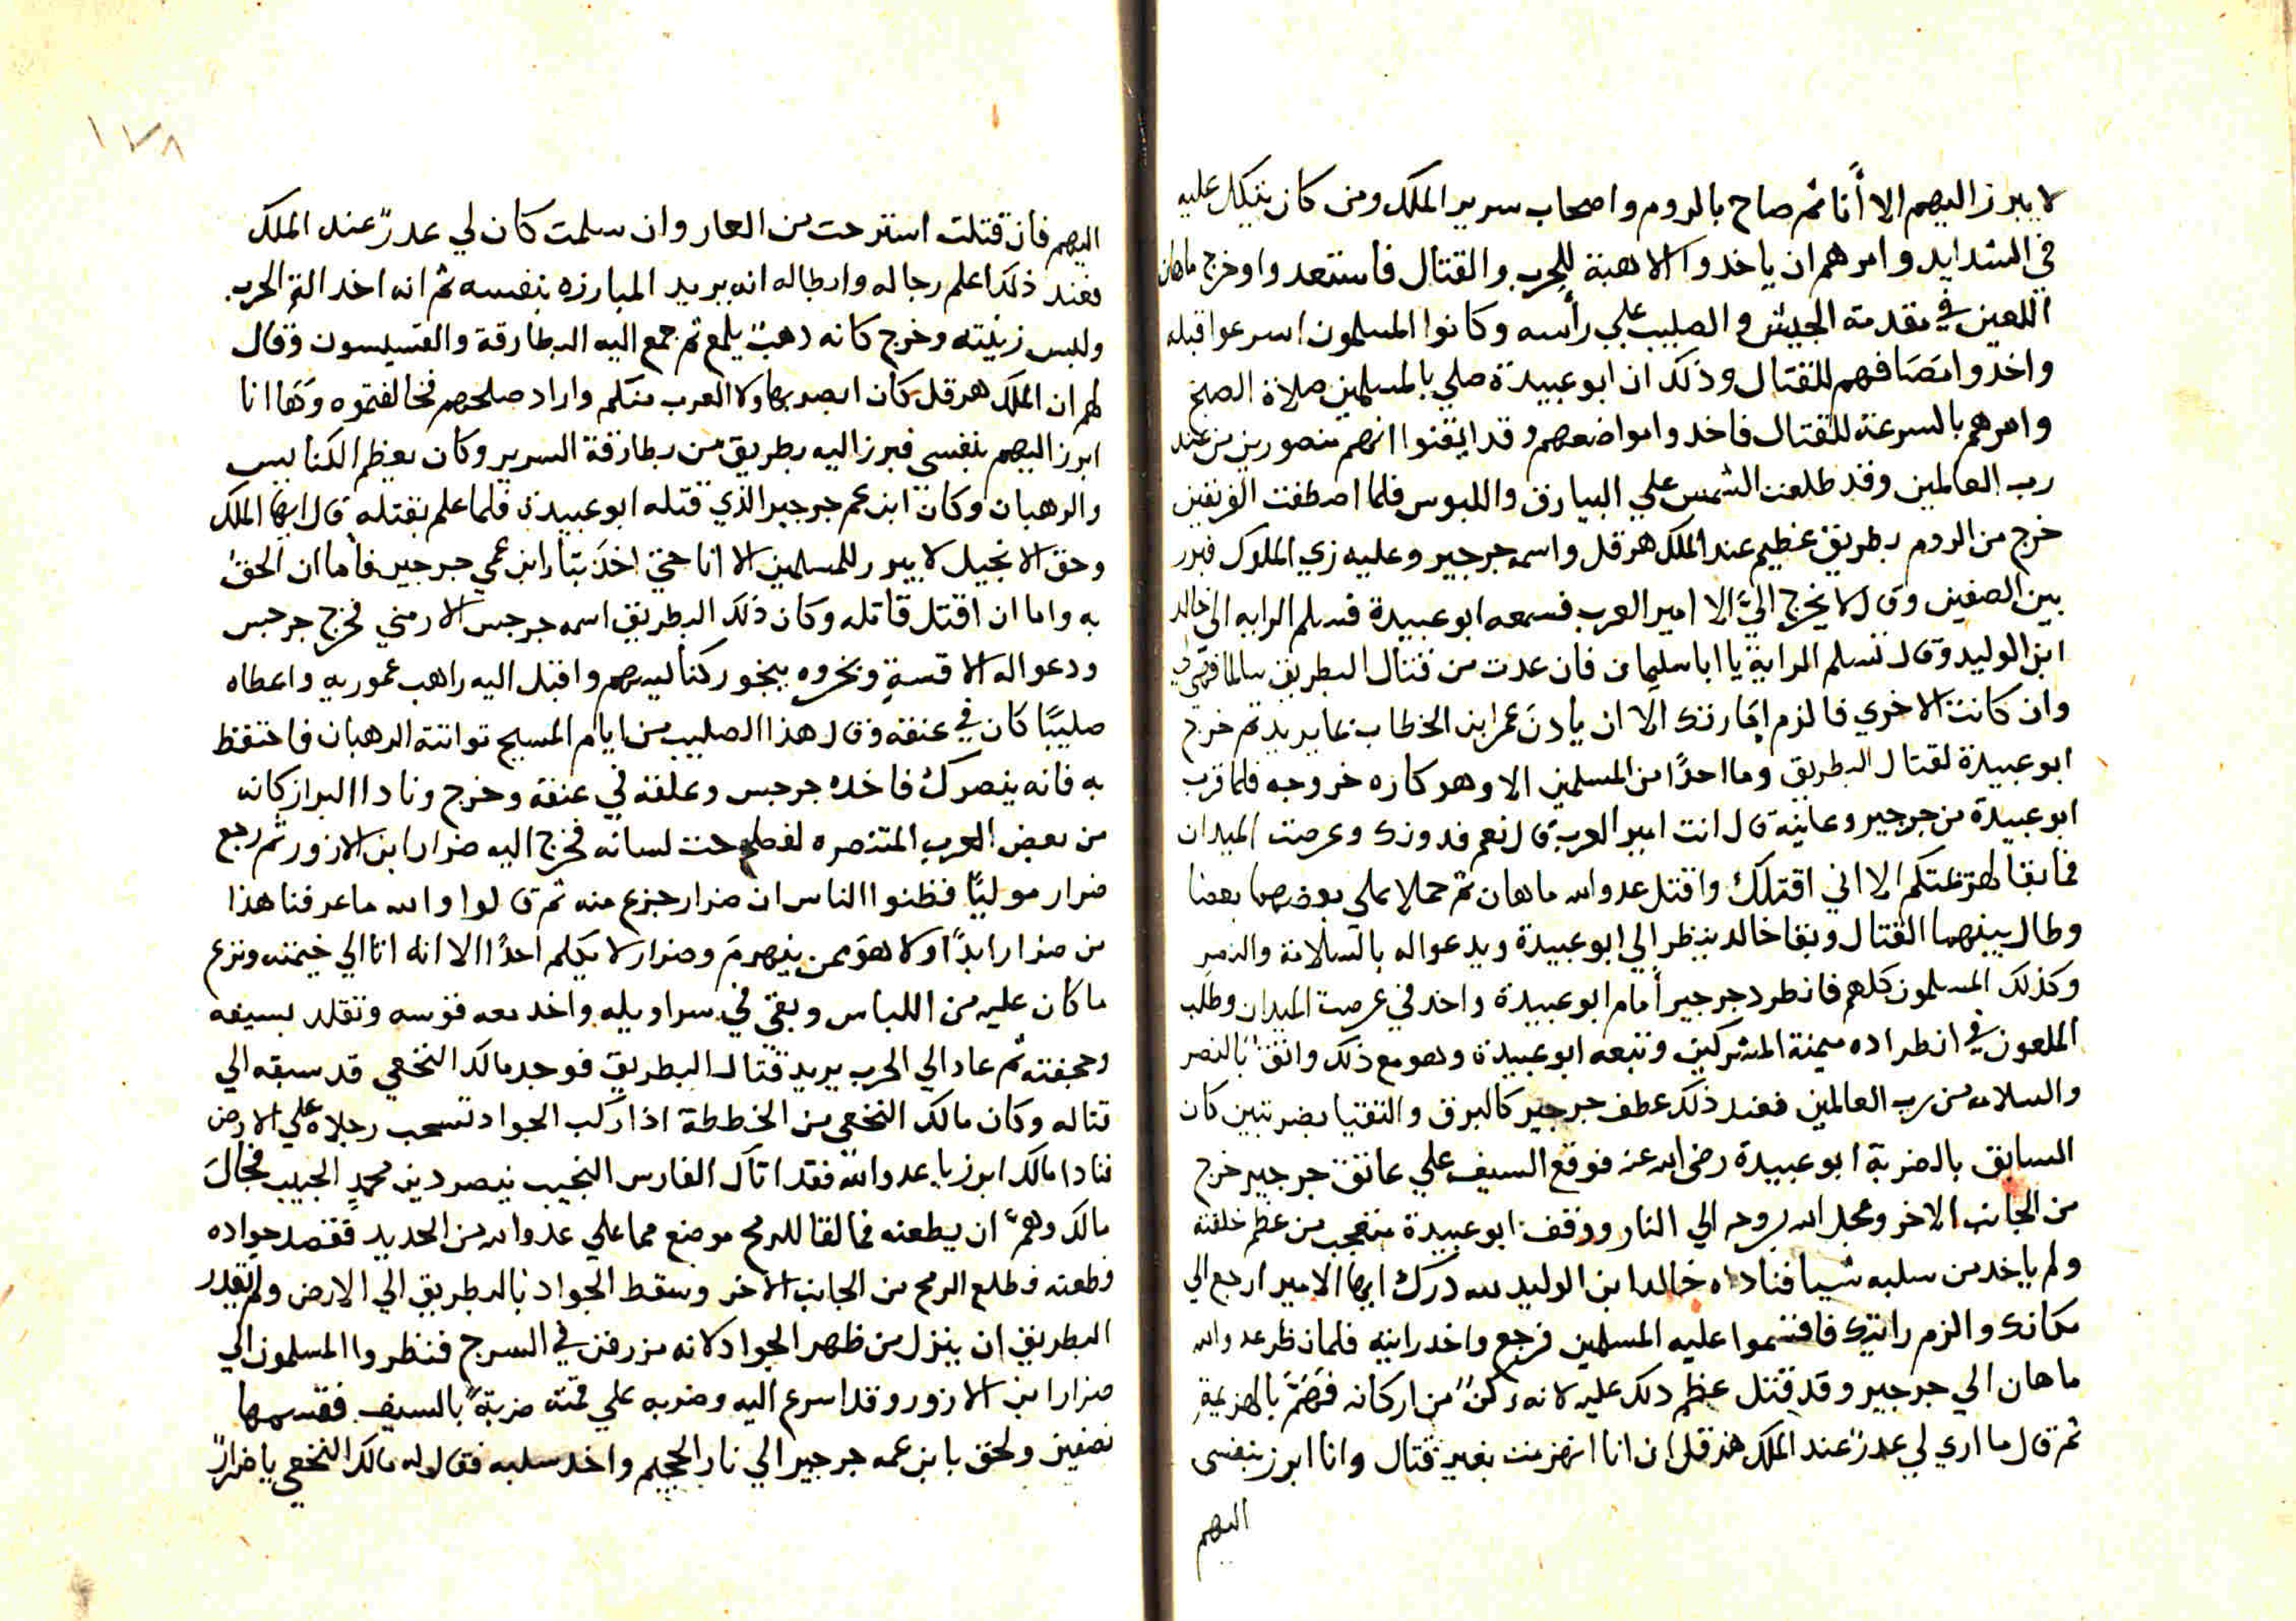 لا يبرز اليهم الا أنا ثم صاح بالروم واصحاب سرير الملك ومن كان يتكل عليه
في الشدايد وامرهم ان ياخدوا الاهبة للحرب والقتال فاستعدوا وخرج ماهان
اللعين في مقدمة الجيش والصليب علي رأسه وكانوا المسلمون اسرعوا قبله
واخدوا مصافهم للقتال وذلك ان ابو عبيدة صلي بالمسلمين صلاة الصبح
وامرهم بالسرعة للقتال فاخدوا مواضعهم وقد ايقنوا انهم منصورين من عند
رب العالمين وقد طلعت الشمس علي البيارق واللبوس فلما اصطفت الفريقين
خرج من الروم بطريق عظيم عند الملك هرقل واسمه جرجير وعليه زي الملوك فبرز
بين الصفين وقال لا يخرج اليَّ الا امير العرب فسمعه ابو عبيدة فسلم الرايه الي خالد
ابن الوليد وقال تسلم الراية يا ابا سليمان فان عدت من قتال البطريق سالما فهي لي
وان كانت الاخري فالزم امارتك الا ان يأدن عمر ابن الخطاب بما يريد ثم خرج
ابو عبيدة لقتال البطريق وما احدًا من المسلمين الا وهو كاره خروجه فلما قرب
ابو عبيدة من جرجير وعاينه قال انت امير العرب قال نعم فدونك وعرصت الميدان
فما بقا لهزيمتكم الا اني اقتلك واقتل عدو الله ماهان ثم حملا علي بعضهما بعضا
وطال بينهما القتال وبقا خالد ينظر الي ابو عبيدة ويدعوا له بالسلامة والنصر
وكذلك المسلمون كلهم فانطرد جرجير أمام ابو عبيدة واخد في عرصت الميدان وطلب
الملعون في انطراده ميمنة المشركين وتبعه ابو عبيدة وهو مع ذلك واثقٌ بالنصر
والسلامه من رب العالمين فعند ذلك عطف جرجير كالبرق والتقيا بضربتين كان
السابق بالضربة ابو عبيدة رضي الله عنه فوقع السيف علي عاتق جرجير خرج
من الجانب الاخر وعجل الله بروحه الي النار ووقف ابو عبيدة متعجب من عظم خلقته
ولم ياخد من سلبه شيا فناداه خالد ابن الوليد لله درك ايها الامير ارجع الي
مكانك والزم رايتك فاقسموا عليه المسلمين فرجع واخد رايته فلما نظر عدو الله
ماهان الي جرجير وقد قتل عظم دلك عليه لانه ركنٌ من اركانه فهَمَّ بالهزيمةِ
ثم قال ما اري لي عدرٌ عند الملك هرقل ان انا انهزمت بغير قتال وانا ابرز بنفسي
اليهم
١٧٨
اليهم فان قتلت استرحت من العار وان سلمت كان لي عدرٌ عند الملك
فعند ذلك اعلم رجاله وابطاله انه يريد المبارزه بنفسه ثم انه اخد الة الحرب
ولبس زينته وخرج كانه دهبٌ يلمع ثم جمع اليه البطارقة والقسيسون وقال
لهم ان الملك هرقل كان ابصر بهاولا العرب منكم واراد صلحهم فخالفتموه وَهَا انا
ابرز اليهم بنفسي فبرز اليه بطريق من بطارقة السرير وكان يعظم الكنايس
والرهبان وكان ابن عم جرجير الذي قتله ابو عبيدة فلما علم بقتله قال ايها الملك
وحق الانجيل لا يبرز للمسلمين الا انا حتي اخدَ بتأر ابن عمي جرجير فأما ان الحق
به واما ان اقتل قاتله وكان ذلك البطريق اسمه جرجس الارمني فخرج جرجس
ودعوا له الاقسةِ وبخروه ببخور كنأيسهم واقبل اليه راهب عموريه واعطاه
صليبًا كان في عنقه وقال هذا الصليب من ايام المسيح تواتته الرهبان فاحتفظ
به فانه ينصرك فاخده جرجس وعلقه في عنقه وخرج ونادا البراز كانه
من بعض العرب المتنصره لفصاحت لسانه فخرج اليه ضرار ابن الازور ثم رجع
ضرار موليًا فظنوا الناس ان ضرار جزع منه ثم قالوا والله ما عرفنا هذا
من ضرار ابدًا ولا هو ممن ينهزمَ وضرار لا يكلم احدًا الا انه اتا الي خيمته ونزع
ما كان عليه من اللباس وبقي في سراويله واخد معه قوسه وتقلد بسيفه
وحجفته ثم عاد الي الحرب يريد قتال البطريق فوجد مالك النخعي قد سبقه الي
قتاله وكان مالك النخعي من الخططة اذا ركب الجواد تسحب رجلاه علي الارض
فنادا مالك ابرز يا عدو الله فقد اتاك الفارس النجيب نينصر دين محمدٍ الحبيب فجالَ
مالك وهمَّ ان يطعنه فما لقا للرمح موضع مما علي عدو الله من الحديد فقصد جواده
وطعنه فطلع الرمح من الجانب الاخر وسقط الجواد بالبطريق الي الارض ولم يقدر
البطريق ان ينزل من ظهر الجواد لانه مزرفن في السرج فنظروا المسلمون الي
ضرار ابن الازور وقد اسرع اليه وضربه علي قمته ضربةً بالسيف فقسمها
نصفين ولحق بابن عمه جرجير الي نار الجحيم واخد سلبه فقال له مالك النخعي يا ضرارٌ